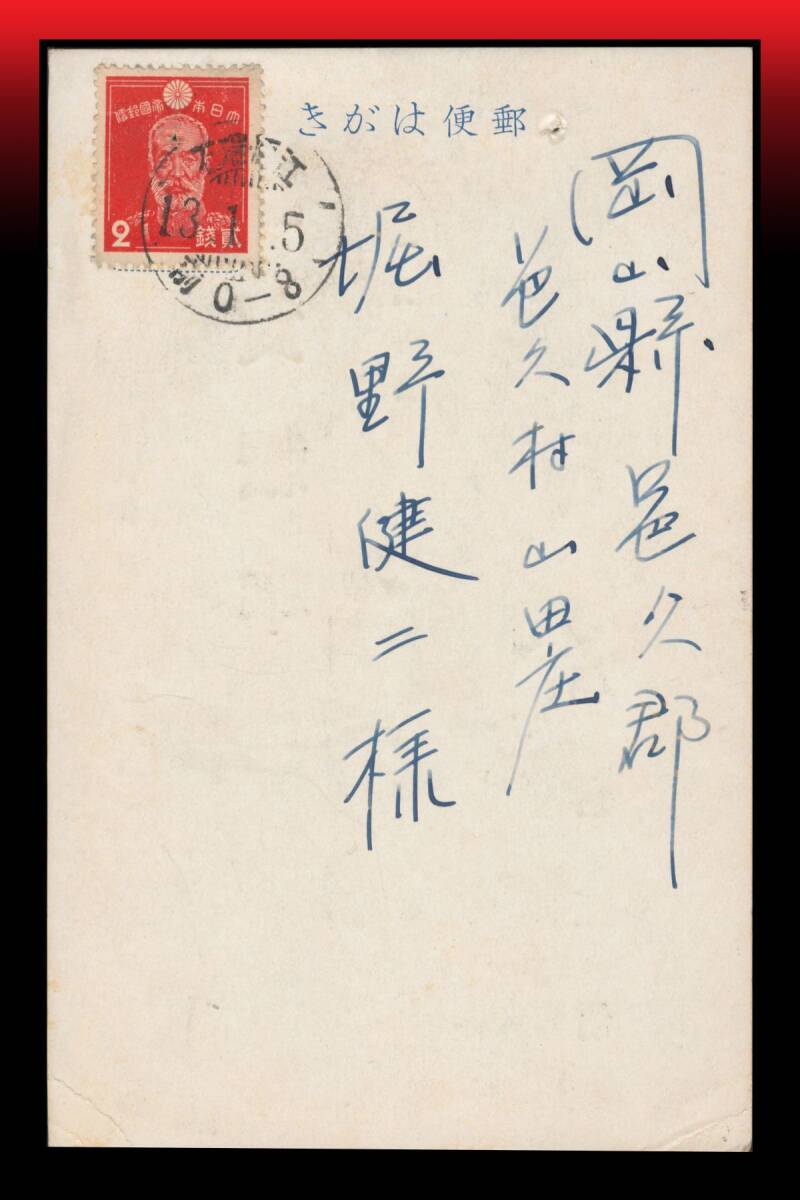 郵便はがき
大日本帝國郵便
2
貳錢
13.1.5
0-8
岡山縣邑久郡
邑久村山田庄
堀野健二様